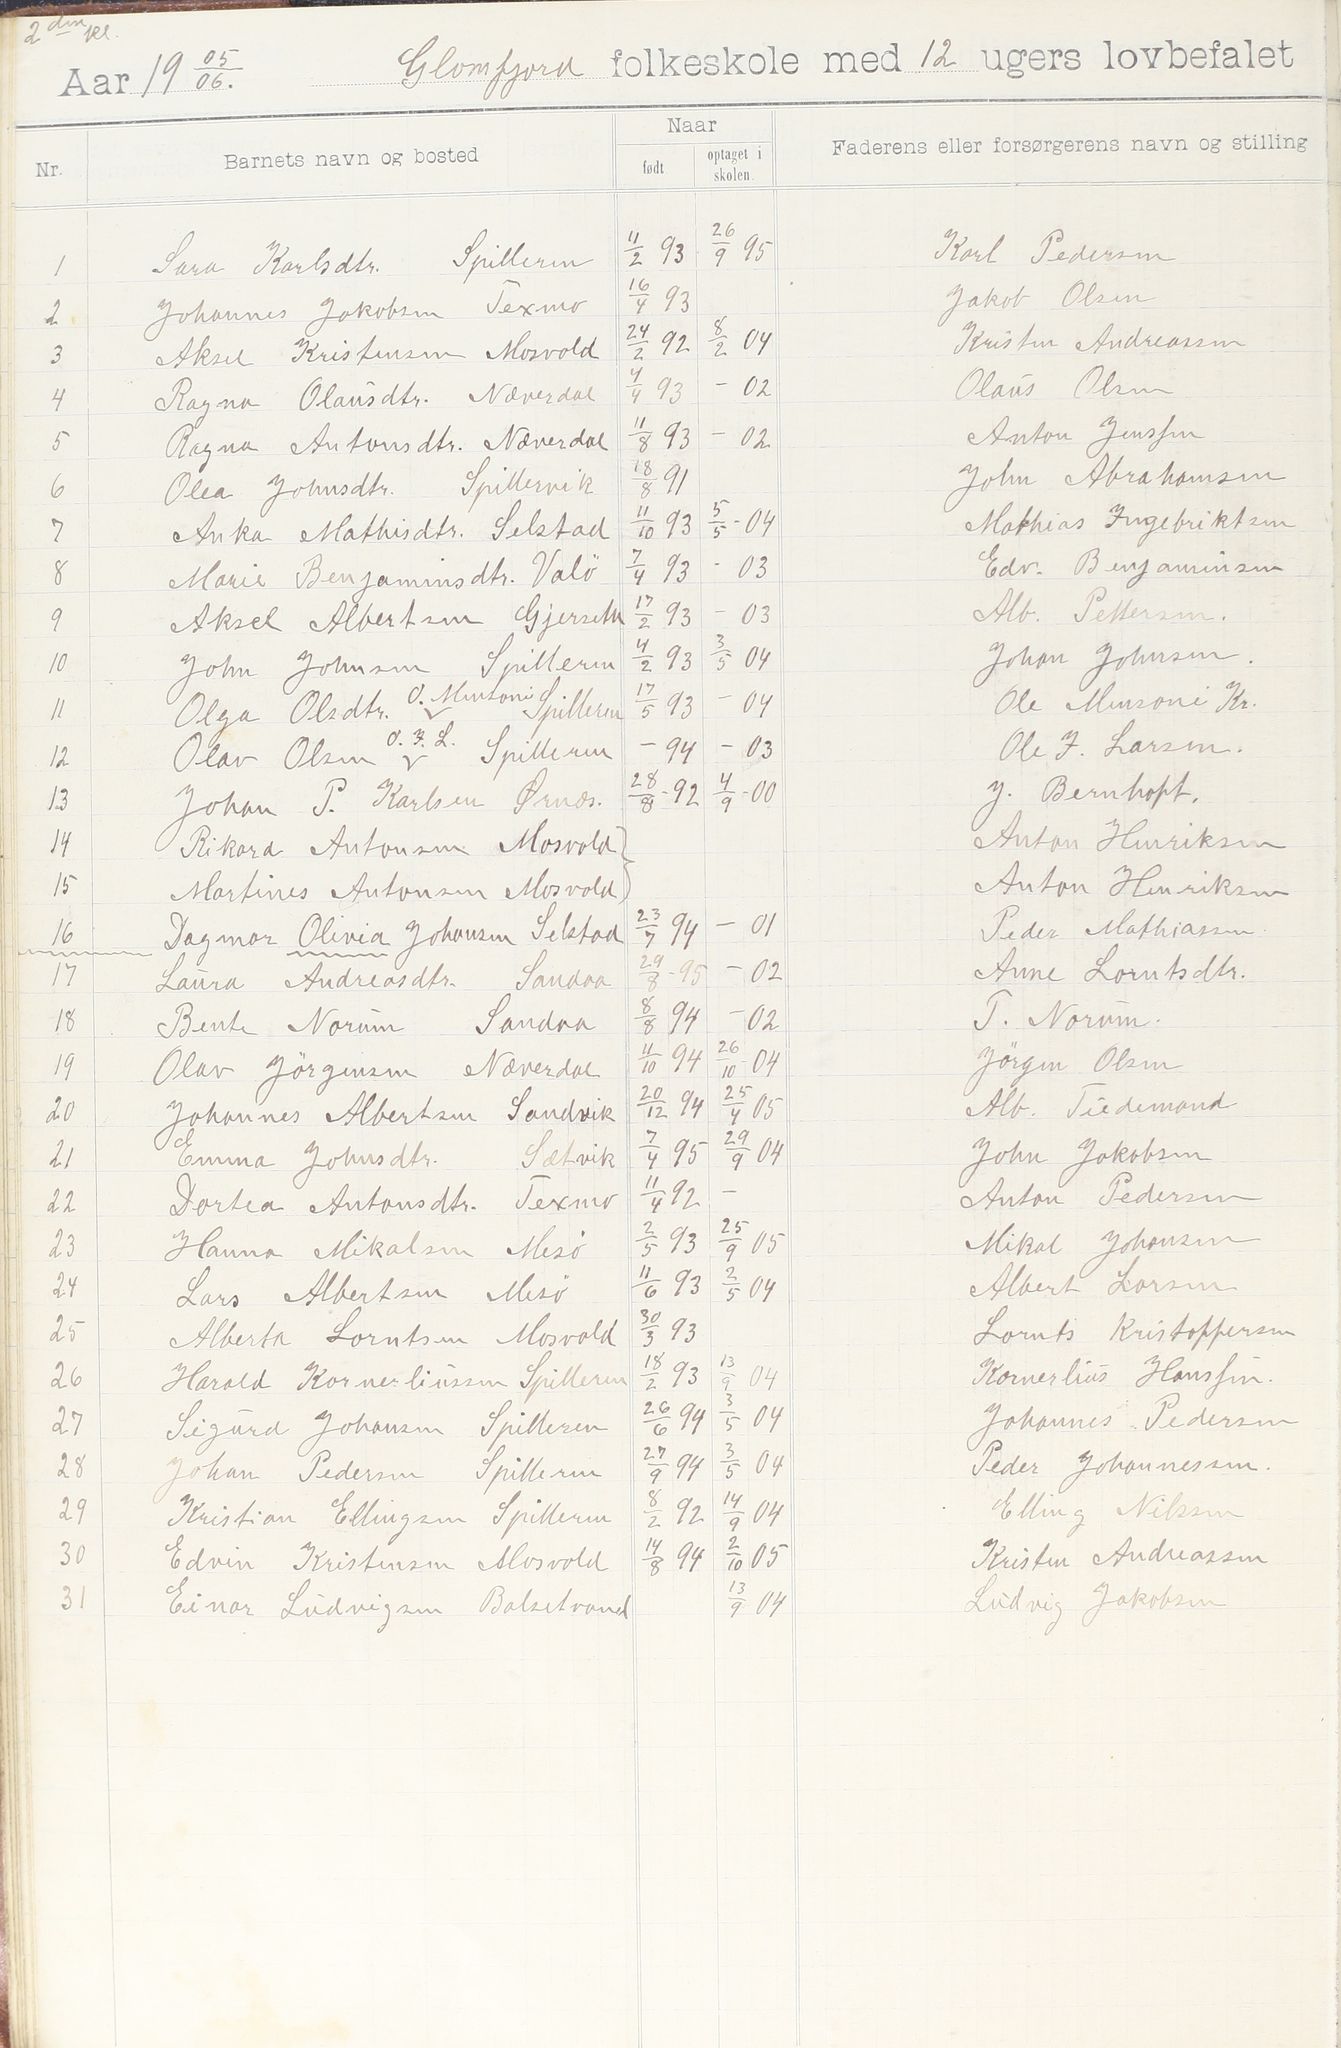 2den kl.
Aar 19 05/06. Glomfjord folkeskole med 12 ugers lovbefalet
Nr. Barnets navn og bosted Naar født optaget i skolen. Faderens eller forsørgerens navn og stilling
1 Sara Karlsdtr. Spilleren 11/2 93 26/9 95 Karl Pedersen
2 Johannes Jakobsen Texmo 16/4 93 Jakob Olsen
3 Aksel Kristensen Mosvold 24/2 92 8/2 04 Kristen Andreassen
4 Ragna Olausdtr. Næverdal 4/4 93 - 02 Olaus Olsen
5 Ragna Antonsdtr. Næverdal 11/8 93 - 02 Anton Jenssen
6 Olea Johnsdtr. Spillervik 18/8 91 John Abrahamsen
7 Anka Mathisdtr. Selstad 11/10 93 5/5 - 04 Mathias Ingebriktsen
8 Marie Benjaminsdtr. Valö 7/4 93 - 03 Edv. Benjaminsen
9 Aksel Albertsen Gjerseth 17/2 93 - 03 Alb. Pettersen.
10 John Johnsen Spilleren 4/2 93 3/5 04 Johan Johnsen.
11 Olga Olsdtr. O. Mensoni Spilleren 17/5 93 - 04 Ole Mensoni Kr.
12 Olav Olsen O. F. L. Spilleren - 94 - 03 Ole F. Larsen.
13 Johan P. Karlsen Ørnes. 28/8 - 92 4/9 - 00 J. Bernhoft.
14 Rikard Antonsen Mosvold Anton Henriksen
15 Martines Antonsen Mosvold Anton Henriksen
16 Dagmar Olivia Johansen Selstad 23/7 94 - 01 Peder Mathiassen.
17 Laura Andreasdtr. Sandaa 29/8 - 95 - 02 Anne Lorntsdtr.
18 Bente Norum Sandaa 8/8 94 - 02 T. Norum.
19 Olav Jörgensen Næverdal 11/10 94 26/10 - 04 Jörgen Olsen
20 Johannes Albertsen Sandvik 20/12 94 25/4 05 Alb. Tiedemand
21 Emma Johnsdtr. Sætvik 7/4 95 29/9 04 John Jakobsen
22 Dortea Antonsdtr. Texmo 11/4 92 - Anton Pedersen
23 Hanna Mikalsen Mesö 2/5 93 25/9 05 Mikal Johansen
24 Lars Albertsen Mesö 11/6 93 2/5 04 Albert Larsen
25 Alberta Lorntsen Mosvold 30/3 93 Lornts Kristoffersen
26 Harald Kornerliussen Spilleren 18/2 93 13/9 04 Kornerlius Hanssen.
27 Sigurd Johansen Spilleren 26/6 94 3/5 04 Johannes Pedersen
28 Johan Pedersen Spilleren 27/9 94 3/5 04 Peder Johannessen.
29 Kristian Ellingsen Spilleren 8/2 92 14/9 04 Elling Nilssen
30 Edvin Kristensen Mosvold 14/8 94 2/10 05 Kristen Andreassen
31 Einar Ludvigsen Balsetvand 13/9 04 Ludvig Jakobsen